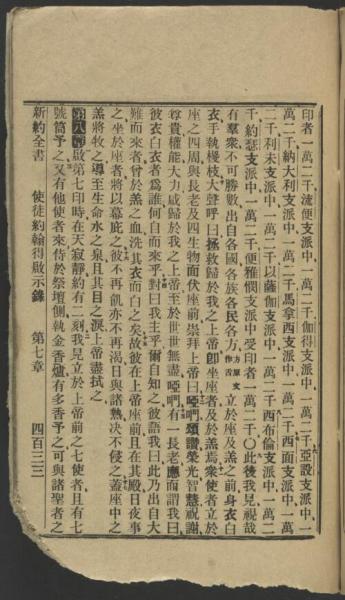 印者一萬二千、流便支派中、一萬二千、伽得支派中、一萬二千、亞設支派中、一
萬二千、納大利支派中、一萬二千、馬拿西支派中、一萬二千、西面支派中、一萬
二千、利未支派中、一萬二千、以薩伽支派中、一萬二千、西布倫支派中、一萬二
千、約瑟支派中、一萬二千、便雅憫支派中受印者一萬二千〇此後我見視哉
有羣衆不可勝數、出自各國各族各民各方、方原文作舌立於座及羔之前、身衣白
衣、手執椶枝、大聲呼曰、拯救歸於我之上帝、卽坐座者、及於羔焉、衆使者立於
座之四周、與長老及四生物、面伏座前、崇拜上帝曰、啞們、頌讚榮光智慧祝謝
尊貴權能大力、咸歸於我之上帝、至於世世無盡、啞們、有一長老應而謂我曰、
彼衣白衣者爲誰、何自而來乎、對曰、我主乎、爾自知之、彼語我曰、此乃出自大
難而來者、曾於羔之血、洗其衣而白之矣、故彼在上帝座前、且在其殿、日夜事
之、坐於座者、將以幕庇之、彼不再飢、亦不再渴、日與諸熱、決不侵之、蓋座中之
羔將牧之、導至生命水之泉、且其目之淚、上帝盡拭之、
第八章 啟第七印時、在天寂靜、約有二刻、我見立於上帝前之七使者、且有七
號筒予之、又有他使者來、侍於祭壇側、執金香爐、有多香予之、可與諸聖者之
新約全書 使徒約翰得啟示錄 第七章 四百三三